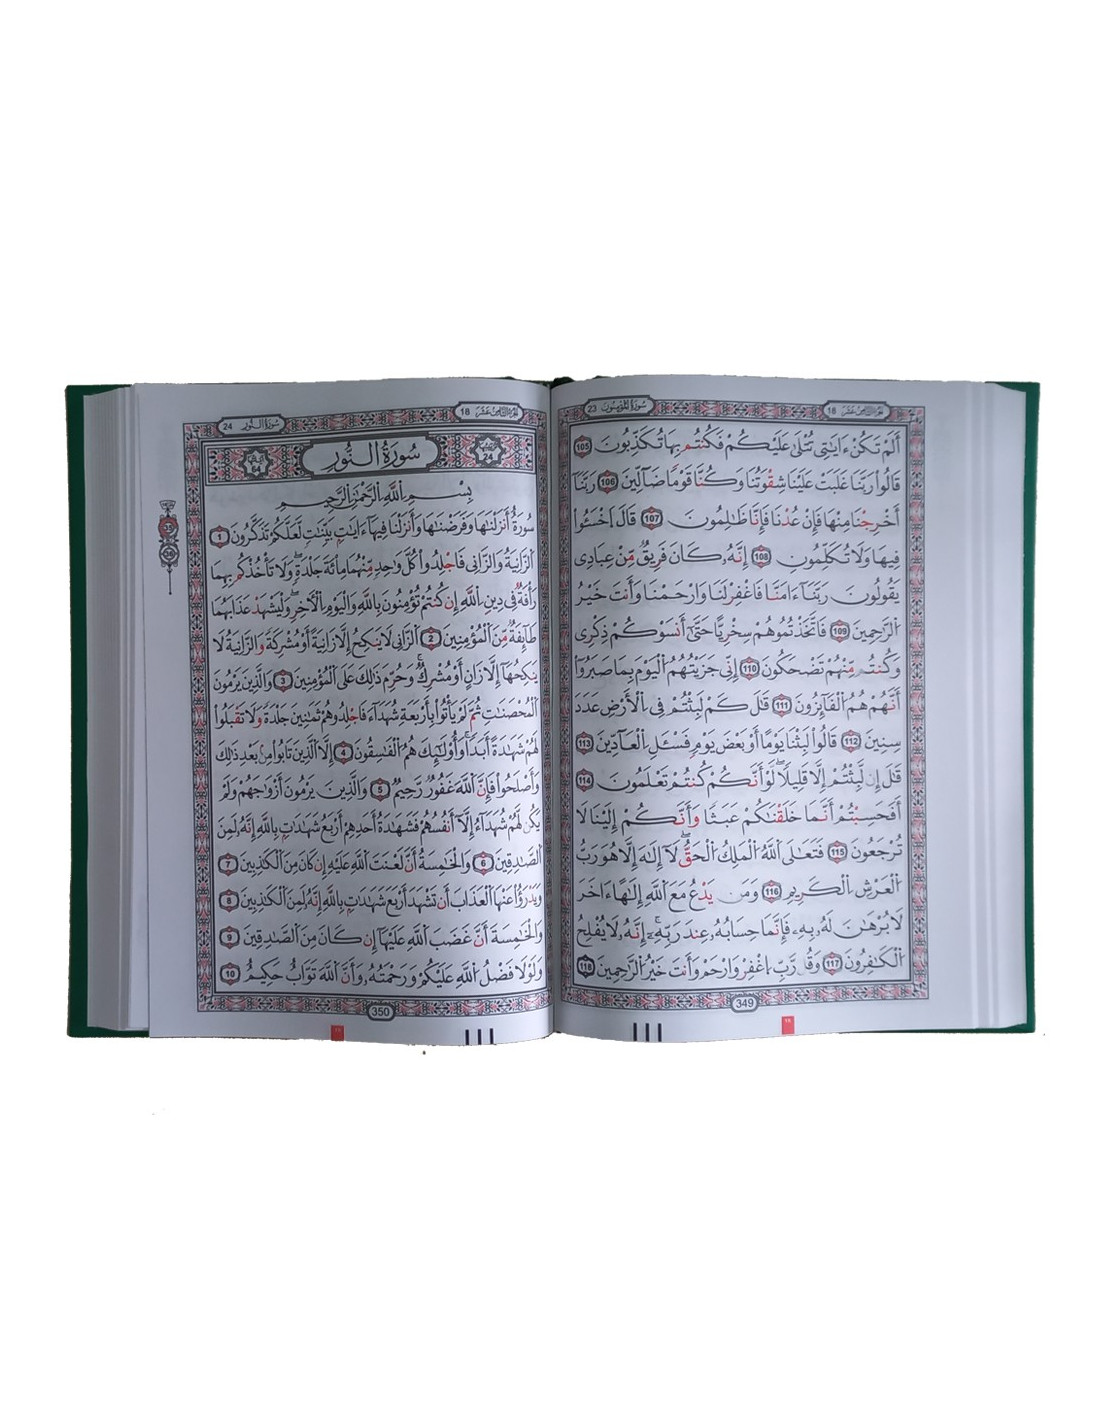 سورة المؤمنون 23
الجزء الثامن عشر 18
أَلَمْ تَكُنْ ءَايَٰتِى تُتْلَىٰ عَلَيْكُمْ فَكُنتُم بِهَا تُكَذِّبُونَ 105
قَالُوا۟ رَبَّنَا غَلَبَتْ عَلَيْنَا شِقْوَتُنَا وَكُنَّا قَوْمًا ضَآلِّينَ 106 رَبَّنَآ
أَخْرِجْنَا مِنْهَا فَإِنْ عُدْنَا فَإِنَّا ظَٰلِمُونَ 107 قَالَ ٱخْسَـُٔوا۟
فِيهَا وَلَا تُكَلِّمُونِ 108 إِنَّهُۥ كَانَ فَرِيقٌ مِّنْ عِبَادِى
يَقُولُونَ رَبَّنَآ ءَامَنَّا فَٱغْفِرْ لَنَا وَٱرْحَمْنَا وَأَنتَ خَيْرُ
ٱلرَّٰحِمِينَ 109 فَٱتَّخَذْتُمُوهُمْ سِخْرِيًّا حَتَّىٰٓ أَنسَوْكُمْ ذِكْرِى
وَكُنتُم مِّنْهُمْ تَضْحَكُونَ 110 إِنِّى جَزَيْتُهُمُ ٱلْيَوْمَ بِمَا صَبَرُوٓا۟
أَنَّهُمْ هُمُ ٱلْفَآئِزُونَ 111 قَٰلَ كَمْ لَبِثْتُمْ فِى ٱلْأَرْضِ عَدَدَ
سِنِينَ 112 قَالُوا۟ لَبِثْنَا يَوْمًا أَوْ بَعْضَ يَوْمٍ فَسْـَٔلِ ٱلْعَآدِّينَ 113
قَٰلَ إِن لَّبِثْتُمْ إِلَّا قَلِيلًا ۖ لَّوْ أَنَّكُمْ كُنتُمْ تَعْلَمُونَ 114
أَفَحَسِبْتُمْ أَنَّمَا خَلَقْنَٰكُمْ عَبَثًا وَأَنَّكُمْ إِلَيْنَا لَا
تُرْجَعُونَ 115 فَتَعَٰلَى ٱللَّهُ ٱلْمَلِكُ ٱلْحَقُّ ۖ لَآ إِلَٰهَ إِلَّا هُوَ رَبُّ
ٱلْعَرْشِ ٱلْكَرِيمِ 116 وَمَن يَدْعُ مَعَ ٱللَّهِ إِلَٰهًا ءَاخَرَ
لَا بُرْهَٰنَ لَهُۥ بِهِۦ فَإِنَّمَا حِسَابُهُۥ عِندَ رَبِّهِۦٓ ۚ إِنَّهُۥ لَا يُفْلِحُ
ٱلْكَٰفِرُونَ 117 وَقُل رَّبِّ ٱغْفِرْ وَٱرْحَمْ وَأَنتَ خَيْرُ ٱلرَّٰحِمِينَ 118
349
الجزء الثامن عشر 18
سورة النور 24
سُورَةُ النُّورِ
بِسْمِ ٱللَّهِ ٱلرَّحْمَٰنِ ٱلرَّحِيمِ
سُورَةٌ أَنزَلْنَٰهَا وَفَرَضْنَٰهَا وَأَنزَلْنَا فِيهَآ ءَايَٰتٍۭ بَيِّنَٰتٍ لَّعَلَّكُمْ تَذَكَّرُونَ 1
ٱلزَّانِيَةُ وَٱلزَّانِى فَٱجْلِدُوا۟ كُلَّ وَٰحِدٍ مِّنْهُمَا مِا۟ئَةَ جَلْدَةٍ ۖ وَلَا تَأْخُذْكُم بِهِمَا
رَأْفَةٌ فِى دِينِ ٱللَّهِ إِن كُنتُمْ تُؤْمِنُونَ بِٱللَّهِ وَٱلْيَوْمِ ٱلْءَاخِرِ ۖ وَلْيَشْهَدْ عَذَابَهُمَا
طَآئِفَةٌ مِّنَ ٱلْمُؤْمِنِينَ 2 ٱلزَّانِى لَا يَنكِحُ إِلَّا زَانِيَةً أَوْ مُشْرِكَةً وَٱلزَّانِيَةُ لَا
يَنكِحُهَآ إِلَّا زَانٍ أَوْ مُشْرِكٌ ۚ وَحُرِّمَ ذَٰلِكَ عَلَى ٱلْمُؤْمِنِينَ 3 وَٱلَّذِينَ يَرْمُونَ
ٱلْمُحْصَنَٰتِ ثُمَّ لَمْ يَأْتُوا۟ بِأَرْبَعَةِ شُهَدَآءَ فَٱجْلِدُوهُمْ ثَمَٰنِينَ جَلْدَةً وَلَا تَقْبَلُوا۟
لَهُمْ شَهَٰدَةً أَبَدًا ۚ وَأُو۟لَٰٓئِكَ هُمُ ٱلْفَٰسِقُونَ 4 إِلَّا ٱلَّذِينَ تَابُوا۟ مِنۢ بَعْدِ ذَٰلِكَ
وَأَصْلَحُوا۟ فَإِنَّ ٱللَّهَ غَفُورٌ رَّحِيمٌ 5 وَٱلَّذِينَ يَرْمُونَ أَزْوَٰجَهُمْ وَلَمْ
يَكُن لَّهُمْ شُهَدَآءُ إِلَّآ أَنفُسُهُمْ فَشَهَٰدَةُ أَحَدِهِمْ أَرْبَعُ شَهَٰدَٰتٍۭ بِٱللَّهِ ۙ إِنَّهُۥ لَمِنَ
ٱلصَّٰدِقِينَ 6 وَٱلْخَٰمِسَةُ أَنَّ لَعْنَتَ ٱللَّهِ عَلَيْهِ إِن كَانَ مِنَ ٱلْكَٰذِبِينَ 7
وَيَدْرَؤُا۟ عَنْهَا ٱلْعَذَابَ أَن تَشْهَدَ أَرْبَعَ شَهَٰدَٰتٍۭ بِٱللَّهِ ۙ إِنَّهُۥ لَمِنَ ٱلْكَٰذِبِينَ 8
وَٱلْخَٰمِسَةَ أَنَّ غَضَبَ ٱللَّهِ عَلَيْهَآ إِن كَانَ مِنَ ٱلصَّٰدِقِينَ 9
وَلَوْلَا فَضْلُ ٱللَّهِ عَلَيْكُمْ وَرَحْمَتُهُۥ وَأَنَّ ٱللَّهَ تَوَّابٌ حَكِيمٌ 10
350